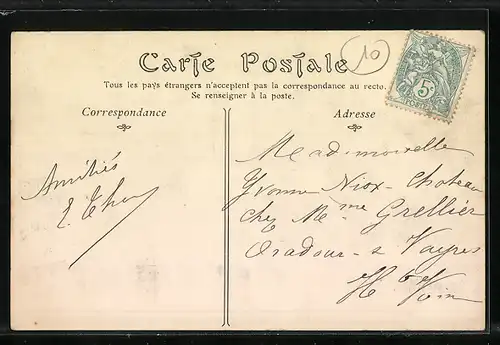 Carte Postale
10
Tous les pays étrangers n'acceptent pas la correspondance au recto.
Se renseigner à la poste.
Correspondance
Adresse
5c
POSTES
Amitiés
Mademoiselle
Yvonne Niox-Chateau
chez Me me Grellier
Oradour-s Vayres
Hte Vien